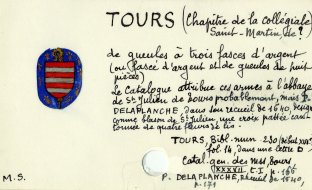 TOURS (Chapitre de la collégiale
Saint-Martin, de ?
de gueules à trois fasces d'argent
(ou fascé d'argent et de gueules de huit
pièces)
Le Catalogue attribue ces armes à l'abbaye
de St Julien de Tours probablement, mais P.
DELAPLANCHE, dans son recueil de 1640, donne
comme blason de St Julien, une croix pattée can-
tonnée de quatre fleurs de lis.
TOURS, Bibl. mun. 230 (début XVIe)
fol. 14, dans une lettre D
Catal. gen. des mss, Tours
XXXVII t. I, p.
P. DELAPLANCHE, Recueil de 1640,
p. 171
M.S.